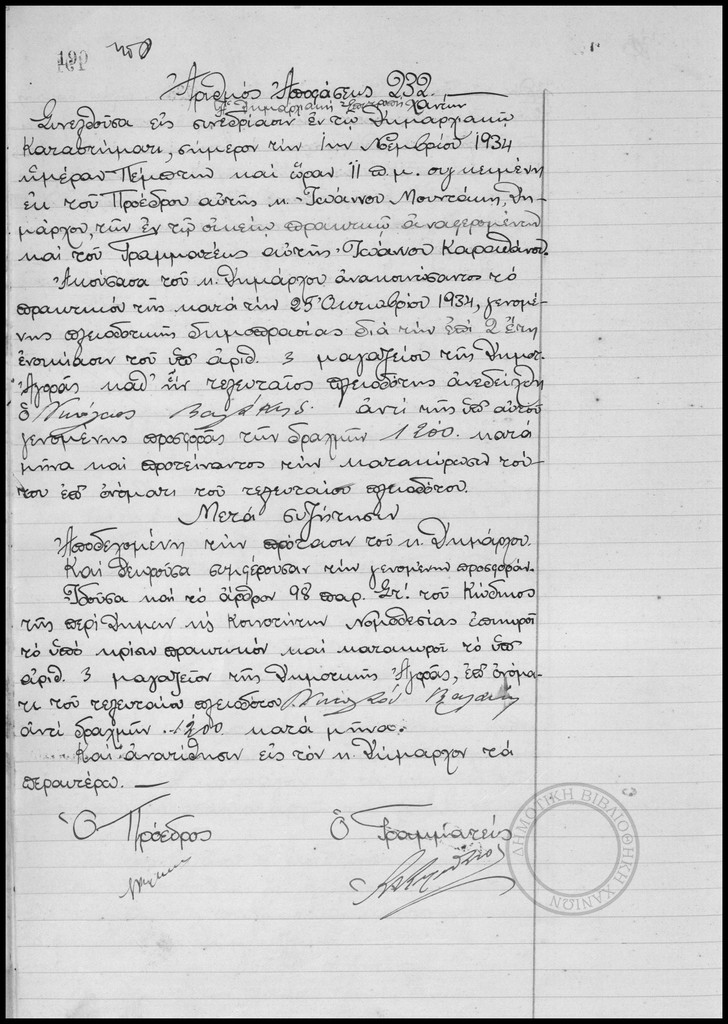 190
Ἀριθμός Ἀποφάσεως 232.
Ἡ Δημαρχιακή Ἐπιτροπή Χανίων
Συνελθοῦσα εἰς συνεδρίασιν ἐν τῷ Δημαρχιακῷ
Καταστήματι, σήμερον τήν 1ην Νοεμβρίου 1934
ἡμέραν Πέμπτην καί ὥραν 11 π.μ. συγκειμένη
ἐκ τοῦ Προέδρου αὐτῆς κ. Ἰωάννου Μουντάκη, Δη-
μάρχου, τῶν ἐν τῷ οἰκείῳ πρακτικῷ ἀναφερομένων
καί τοῦ Γραμματέως αὐτῆς Ἰωάννου
Ἀκούσασα τοῦ κ. Δημάρχου ἀνακοινώσαντος τό
πρακτικόν τῆς κατά τήν 25 Ὀκτωβρίου 1934, γενομέ-
νης πλειοδοτικῆς δημοπρασίας διά τήν ἐπί 2 ἔτη
ἐνοικίασιν τοῦ ὑπ' ἀριθ. 3 μαγαζείου τῆς Δημοτ.
Ἀγορᾶς καθ' ἥν τελευταῖος πλειοδότης ἀνεδείχθη
ὁ Νικόλαος Βαλάκης ἀντί τῆς ὑπ' αὐτοῦ
γενομένης προσφορᾶς τῶν δραχμῶν 1200. κατά
μῆνα καί προτείναντος τήν κατακύρωσιν τού-
του ἐπ' ὀνόματι τοῦ τελευταίου πλειοδότου.
Μετά συζήτησιν
Ἀποδεχομένη τήν πρότασιν τοῦ κ. Δημάρχου.
Καί θεωροῦσα συμφέρουσαν τήν γενομένην προσφοράν.
Ἰδοῦσα καί τό ἄρθρον 98 παρ. Στ'. τοῦ Κώδικος
τῆς περί Δήμων κ' Κοινοτήτων Νομοθεσίας ἐπικυροῖ
τό ὑπό κρίσιν πρακτικόν καί κατακυροῖ τό ὑπ'
ἀριθ. 3 μαγαζεῖον τῆς Δημοτικῆς Ἀγορᾶς, ἐπ' ὀνόμα-
τι τοῦ τελευταίου πλειοδότου Νικολάου Βαλάκη
ἀντί δραχμῶν 1200 κατά μῆνα.
Καί ἀνατίθησιν εἰς τόν κ. Δήμαρχον τά
περαιτέρω. —
Ὁ Πρόεδρος Ὁ Γραμματεύς
ΔΗΜΟΤΙΚΗ ΒΙΒΛΙΟΘΗΚΗ ΧΑΝΙΩΝ